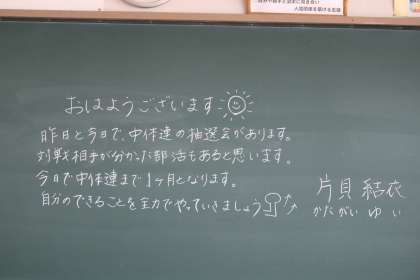 おはようございます
昨日と今日で、中体連の抽選会があります。
対戦相手が分かった部活もあると思います。
今日で中体連まで1ヶ月となります。
自分のできることを全力でやっていきましょう
片貝 結衣
かたがい ゆい